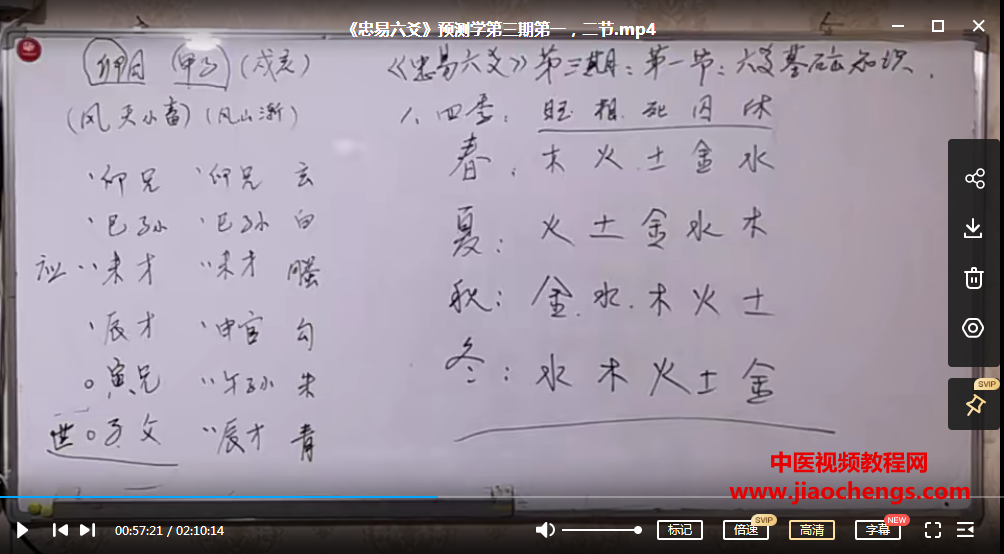 《忠易六爻》预测学第三期第一，二节.mp4
卯月 甲子 (戌亥)
(风天小畜) (风山渐)
、卯兄 、卯兄 玄
、巳孙 、巳孙 白
应 、、未才 、、未才 螣
、辰才 、申官 勾
○ 寅兄 、、午孙 朱
世 ○ 子父 、、辰才 青
《忠易六爻》第三期：第一节：六爻基础知识.
1、四季： 旺 相 死 囚 休
春： 木 火 土 金 水
夏： 火 土 金 水 木
秋： 金 水 木 火 土
冬： 水 木 火 土 金
SVIP
中医视频教程网
www.jiaochengs.com
00:57:21 / 02:10:14
标记
倍速 SVIP
高清
字幕 NEW